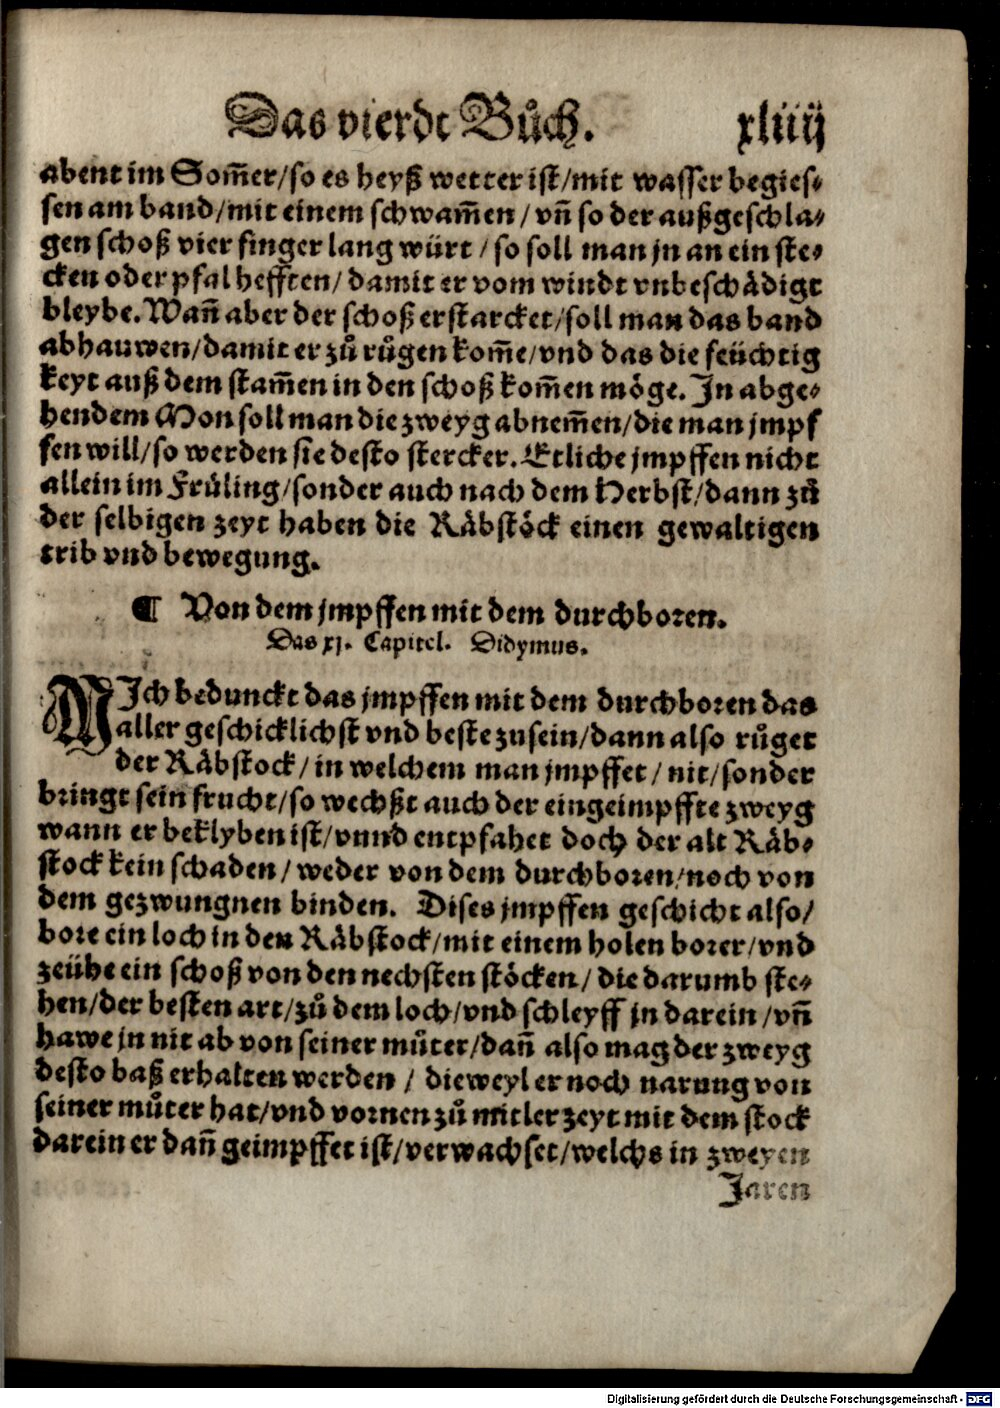 Das vierdt Bůch. xliiij
abent im Som̃er/so es heyß wetter ist/mit wasser begies⸗
sen am band/mit einem schwam̃en/vñ so der außgeschla⸗
gen schoß vier finger lang würt/so soll man jn an ein ste⸗
cken oder pfal hefften/damit er vom windt vnbeschädigt
bleybe. Wañ aber der schoß erstarcket/soll man das band
abhauwen/damit er zů růgen kom̃e/vnd das die feüchtig
keyt auß dem stam̃en in den schoß kom̃en möge. In abge⸗
hendem Mon soll man die zweyg abnem̃en/die man jmpf
fen will/so werden sie desto stercker. Etliche jmpffen nicht
allein im Früling/sonder auch nach dem Herbst/dann zů
der selbigen zeyt haben die Räbstöck einen gewaltigen
trib vnd bewegung.
¶ Von dem jmpffen mit dem durchboren.
Das xj. Capitel. Didymus.
MIch bedunckt das jmpffen mit dem durchboren das
aller geschicklichst vnd beste zusein/dann also růget
der Räbstock/in welchem man jmpffet/nit/sonder
bringt sein frucht/so wechßt auch der eingeimpffte zweyg
wann er beklyben ist/vnnd entpfahet doch der alt Räb⸗
stock kein schaden/weder von dem durchboren/noch von
dem gezwungnen binden. Dises jmpffen geschicht also/
bore ein loch in den Räbstock/mit einem holen borer/vnd
zeühe ein schoß von den nechsten stöcken/die darumb ste⸗
hen/der besten art/zů dem loch/vnd schleyff jn darein/vñ
hawe jn nit ab von seiner můter/dañ also mag der zweyg
desto baß erhalten werden/dieweyl er noch narung von
seiner můter hat/vnd vornen zů mitler zeyt mit dem stock
darein er dañ geimpffet ist/verwachset/welchs in zweyen
Jaren
Digitalisierung gefördert durch die Deutsche Forschungsgemeinschaft - DFG